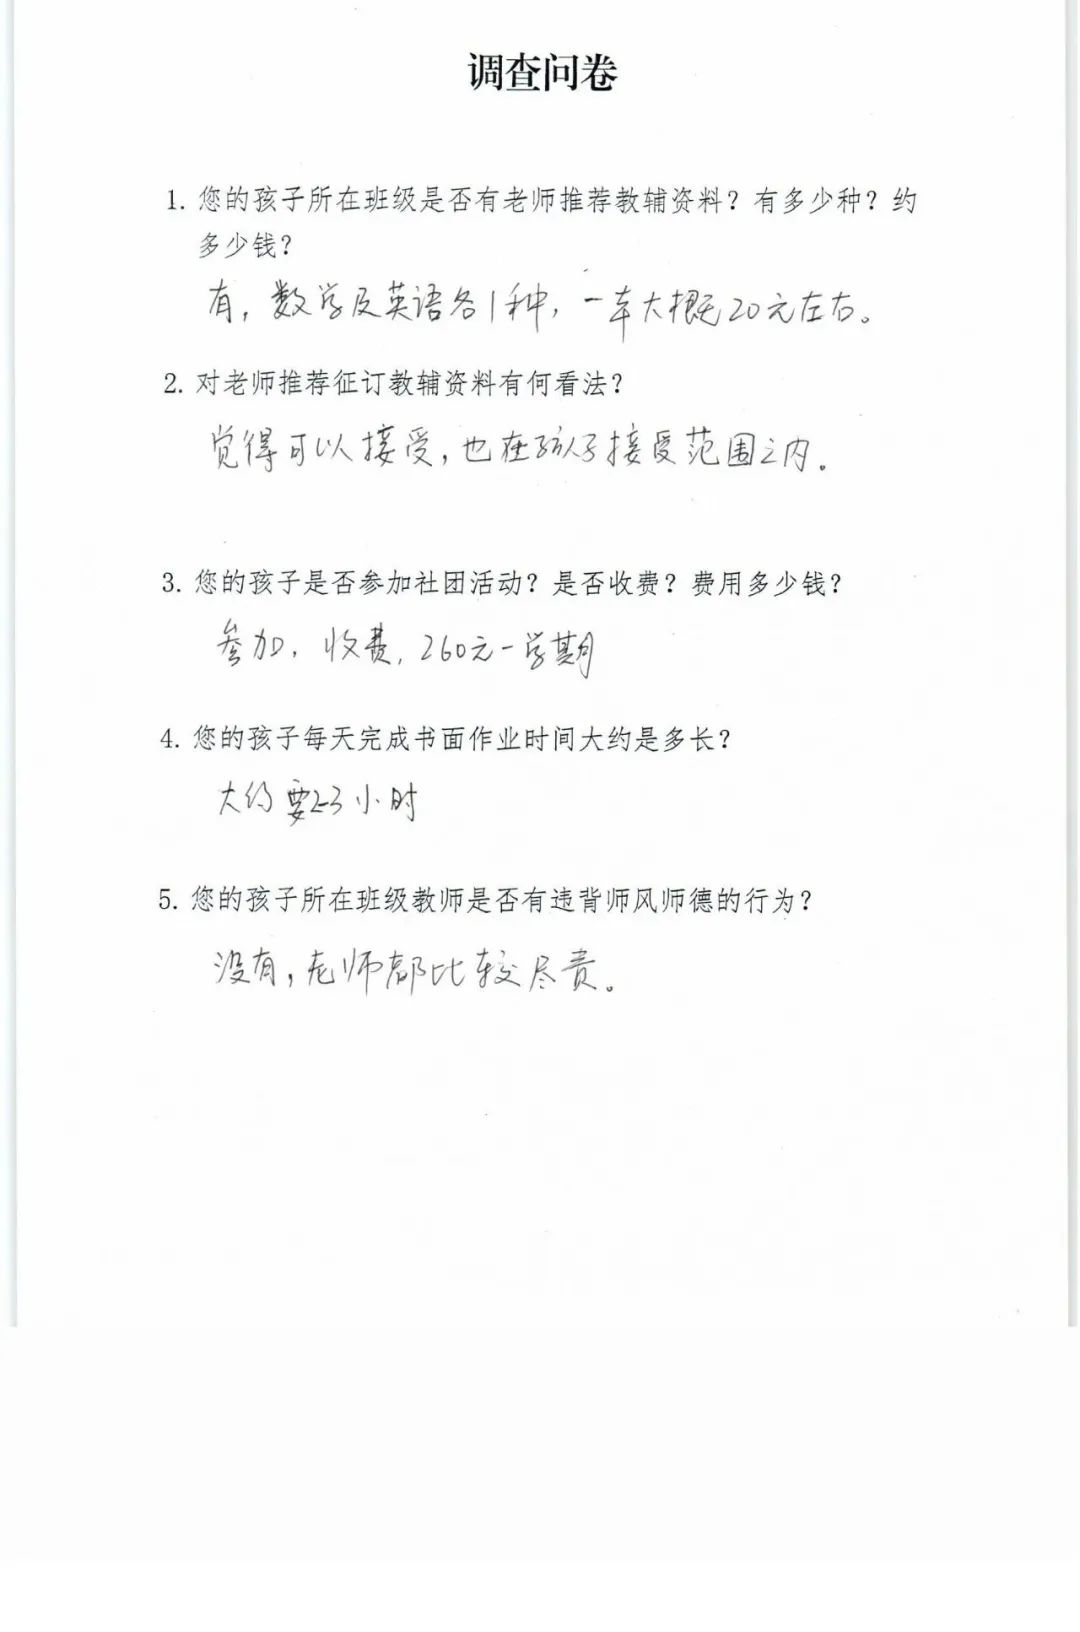 调查问卷
1. 您的孩子所在班级是否有老师推荐教辅资料？有多少种？约
多少钱？
有，数学及英语各1种，一本大概20元左右。
2. 对老师推荐征订教辅资料有何看法？
觉得可以接受，也在孩子接受范围之内。
3. 您的孩子是否参加社团活动？是否收费？费用多少钱？
参加，收费，260元一学期
4. 您的孩子每天完成书面作业时间大约是多长？
大约要2-3小时
5. 您的孩子所在班级教师是否有违背师风师德的行为？
没有，老师都比较尽责。